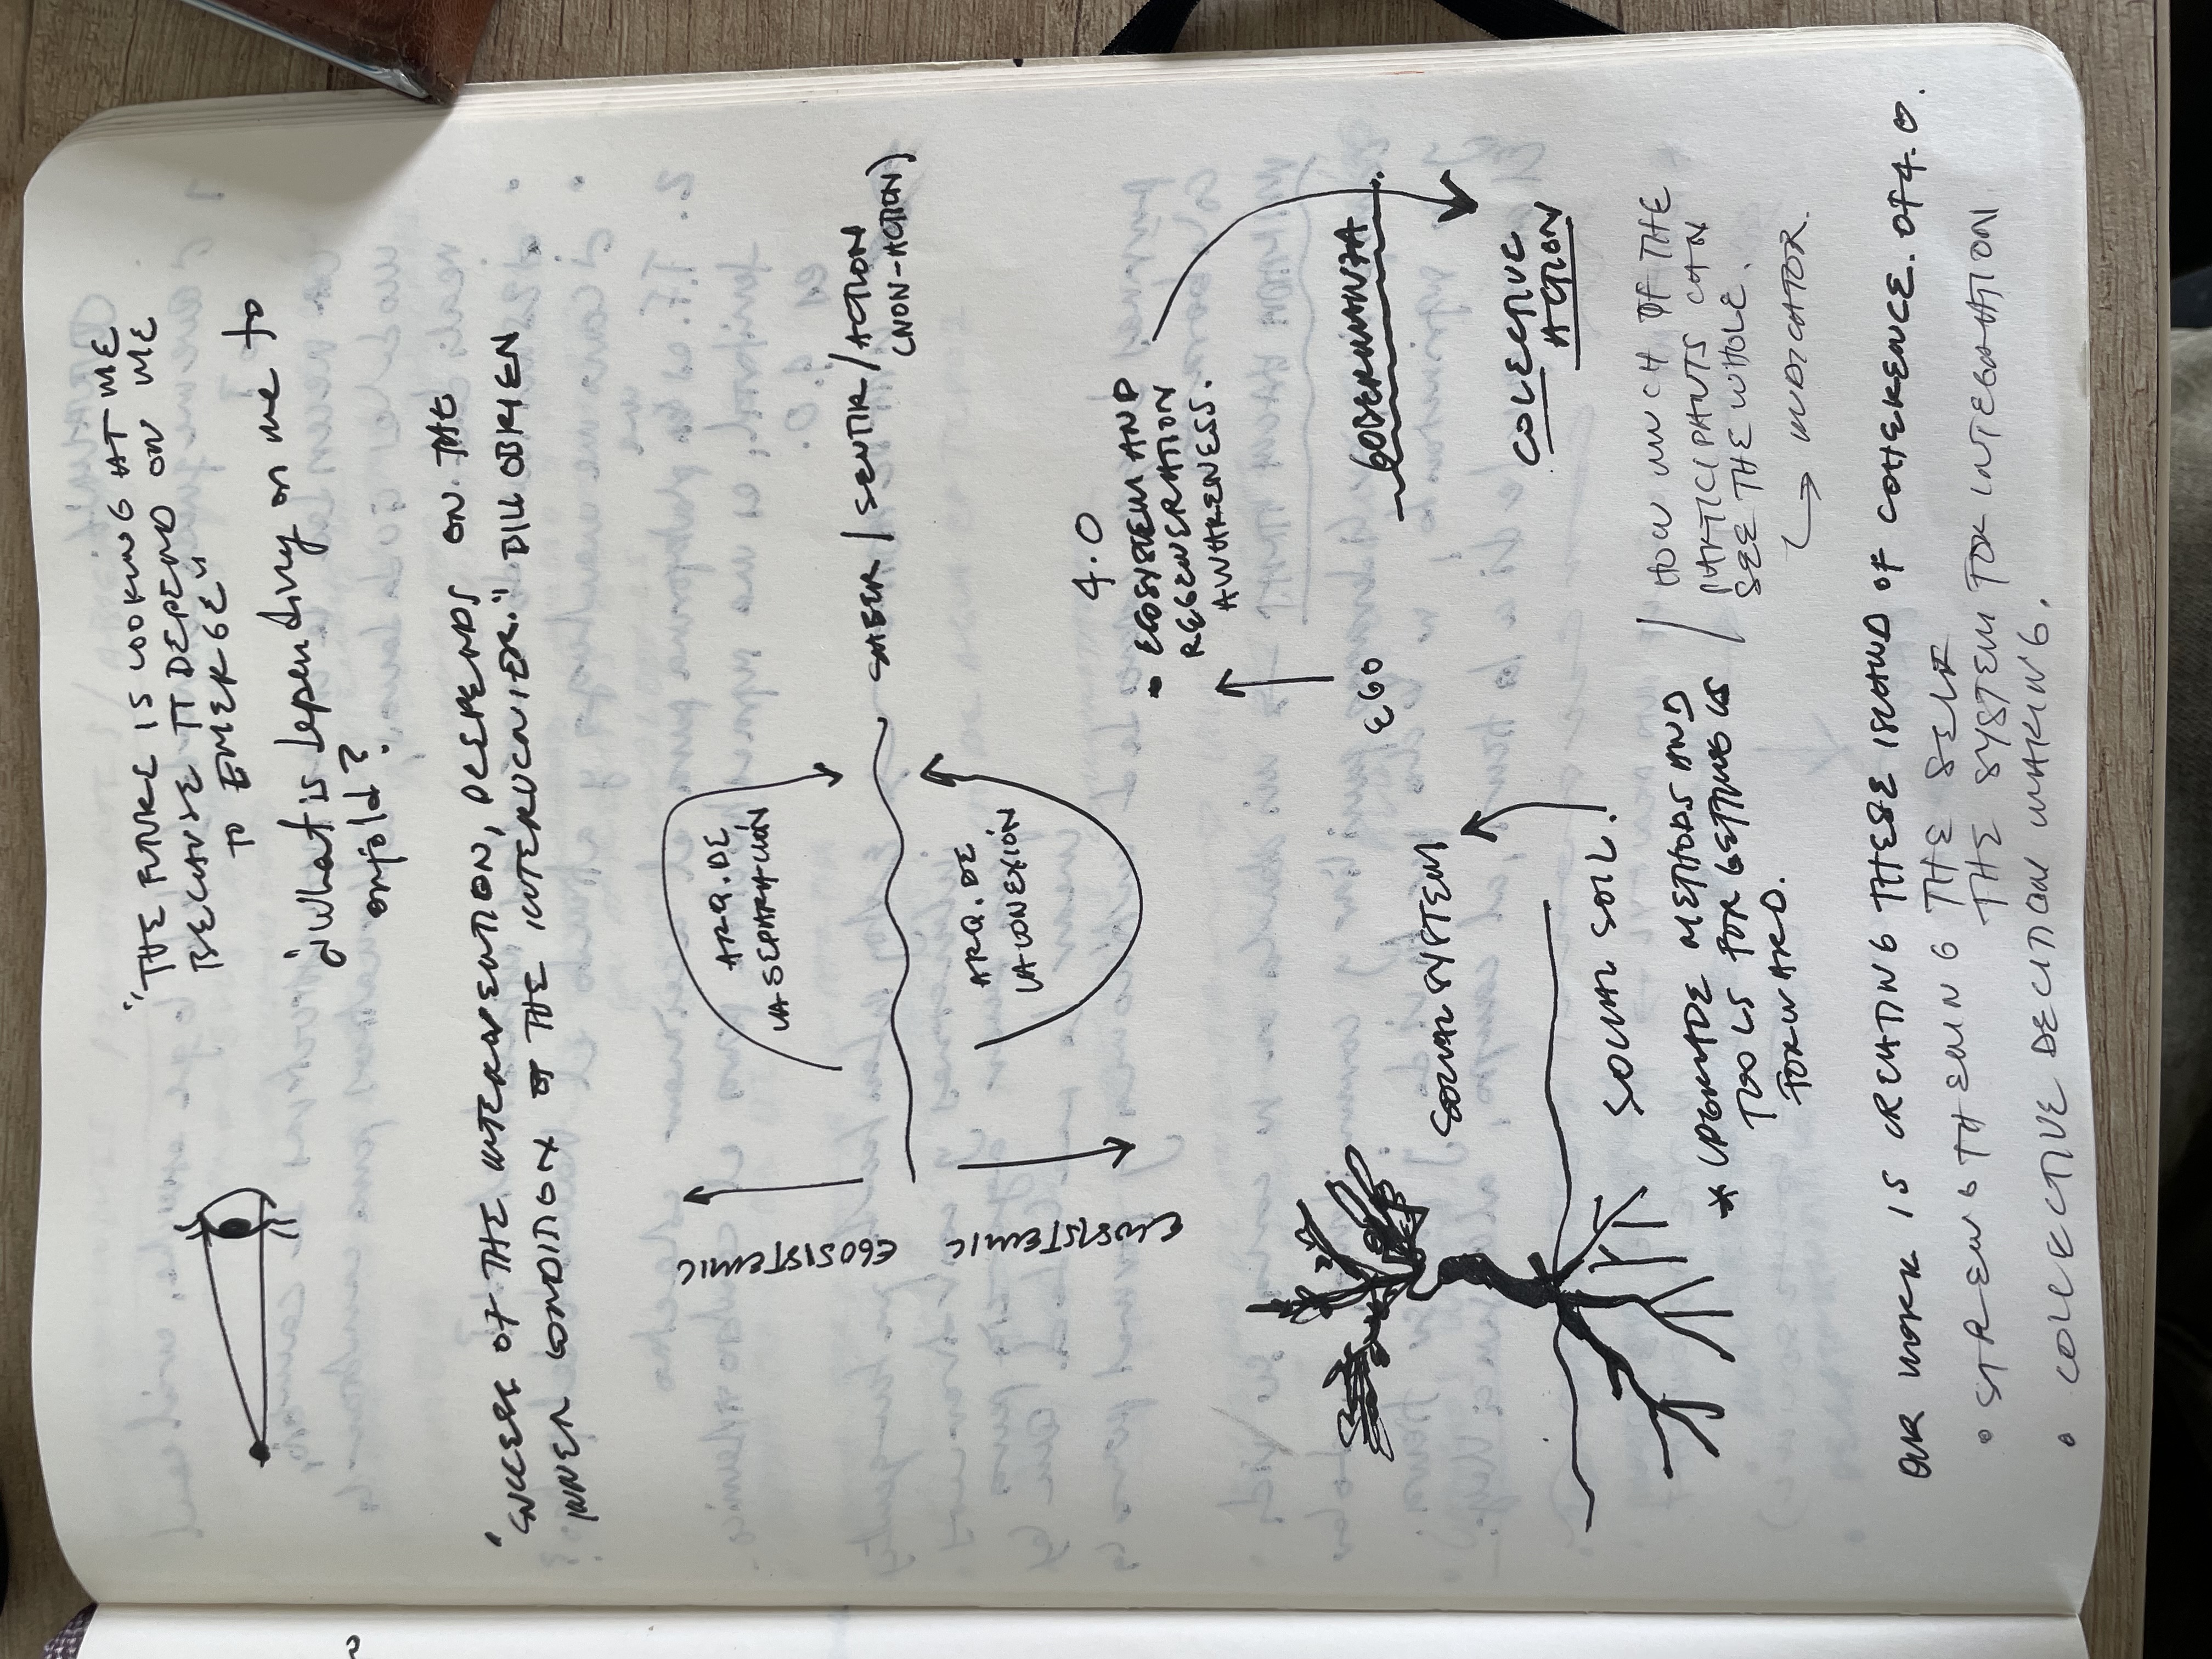 "THE FUTURE IS LOOKING AT ME
BECAUSE IT DEPEND ON ME
TO EMERGE"
¿what is depending on me to
onfold?
"SUCCESS OF THE INTERVENTION, DEPENDS ON THE
INNER CONDITION OF THE INTERVENIER." BILL OBRIEN
EGOSISTEMIC
ECOSISTEMIC
ARQ. DE
LA SEPARACIÓN
ARQ. DE
LA CONEXIÓN
SABER / SENTIR / ACTION
(NON-ACTION)
4.0
• ECOSYSTEM AND
REGENERATION
AWARENESS.
EGO
GOBERNANZA
COLECTIVE
ACTION
SOCIAL SYSTEM
SOCIAL SOIL.
* UPGRADE METHODS AND
TOOLS FOR GETTING US
FORWARD.
HOW MUCH OF THE
PARTICIPANTS CAN
SEE THE WHOLE.
↳ INDICATOR.
OUR WORK IS CREATING THESE ISLAND OF COHERENCE. OF 4.0.
• STRENGTHENING THE SELF
THE SYSTEM FOR INTEGRATION
• COLLECTIVE DECITION MAKING.